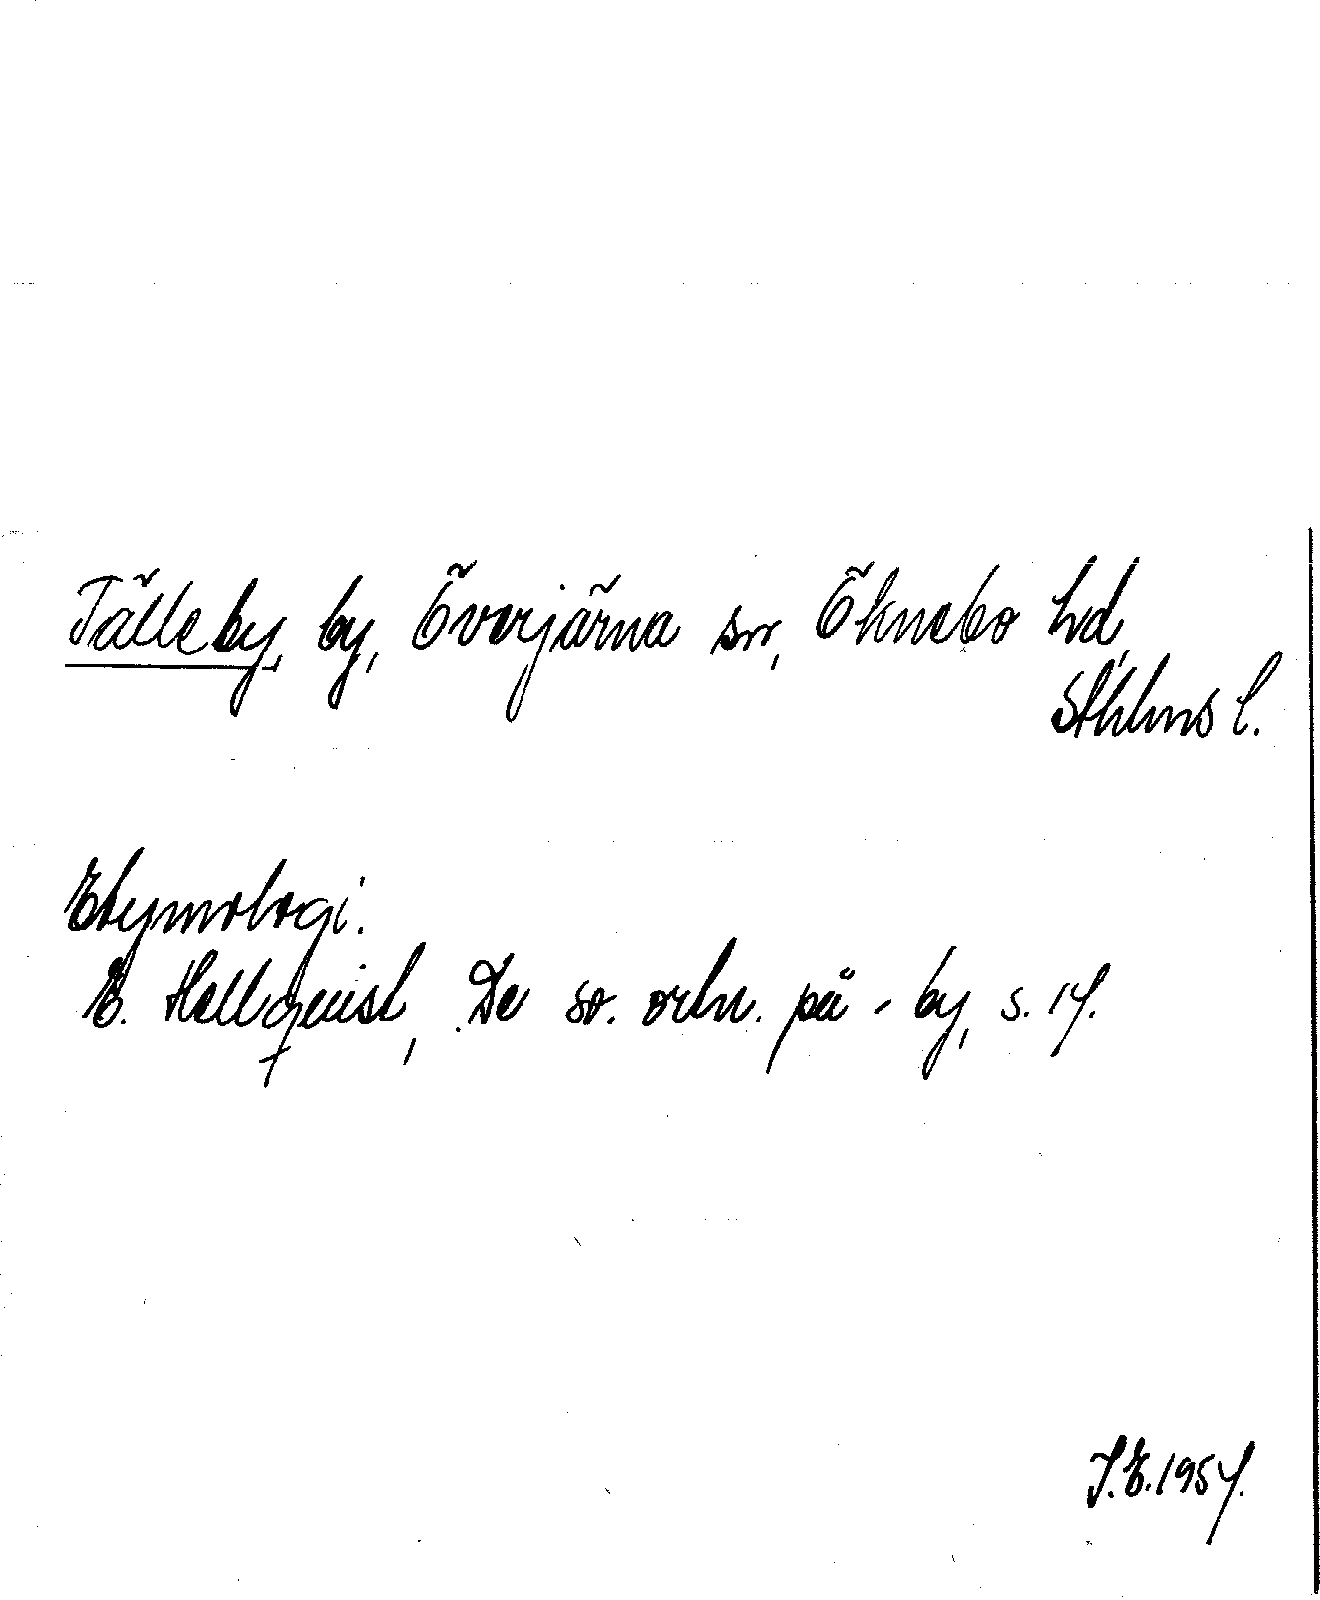 Tälleby, by, Överjärna sn, Öknebo hd,
Sthlms l.
Etymologi.
E. Hellquist, De sv. ortn. på -by, s. 14.
J.E. 1954.